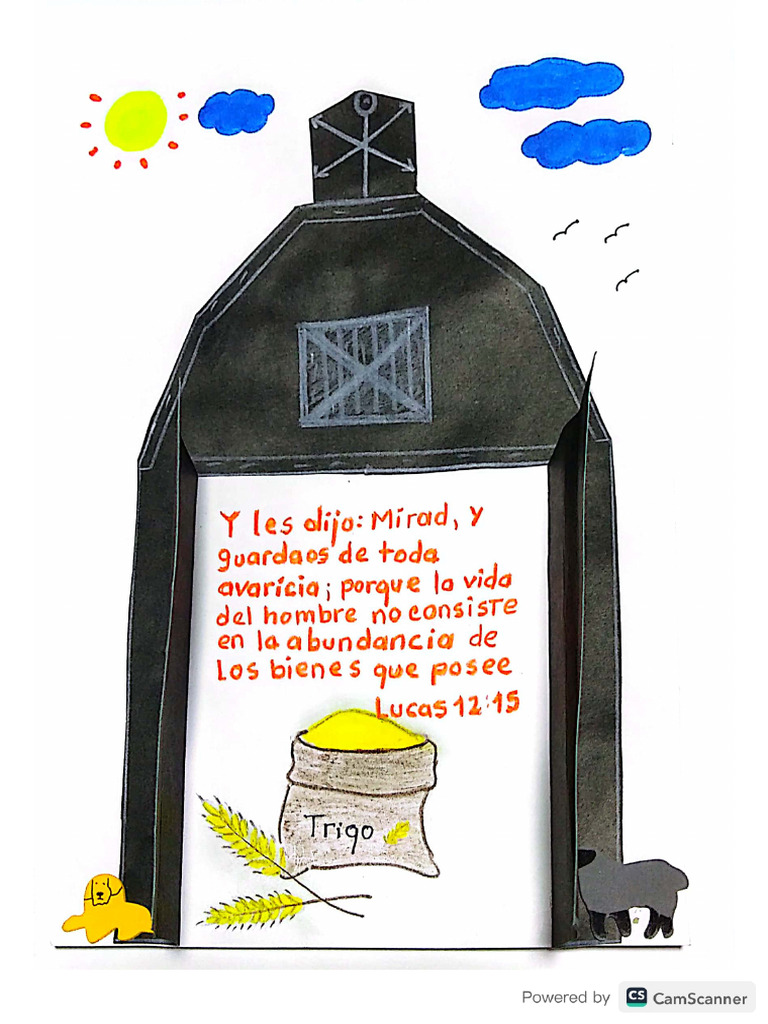 Y les dijo: Mirad, y
guardaos de toda
avaricia; porque la vida
del hombre no consiste
en la abundancia de
los bienes que posee
Lucas 12:15
Trigo
Powered by CS CamScanner